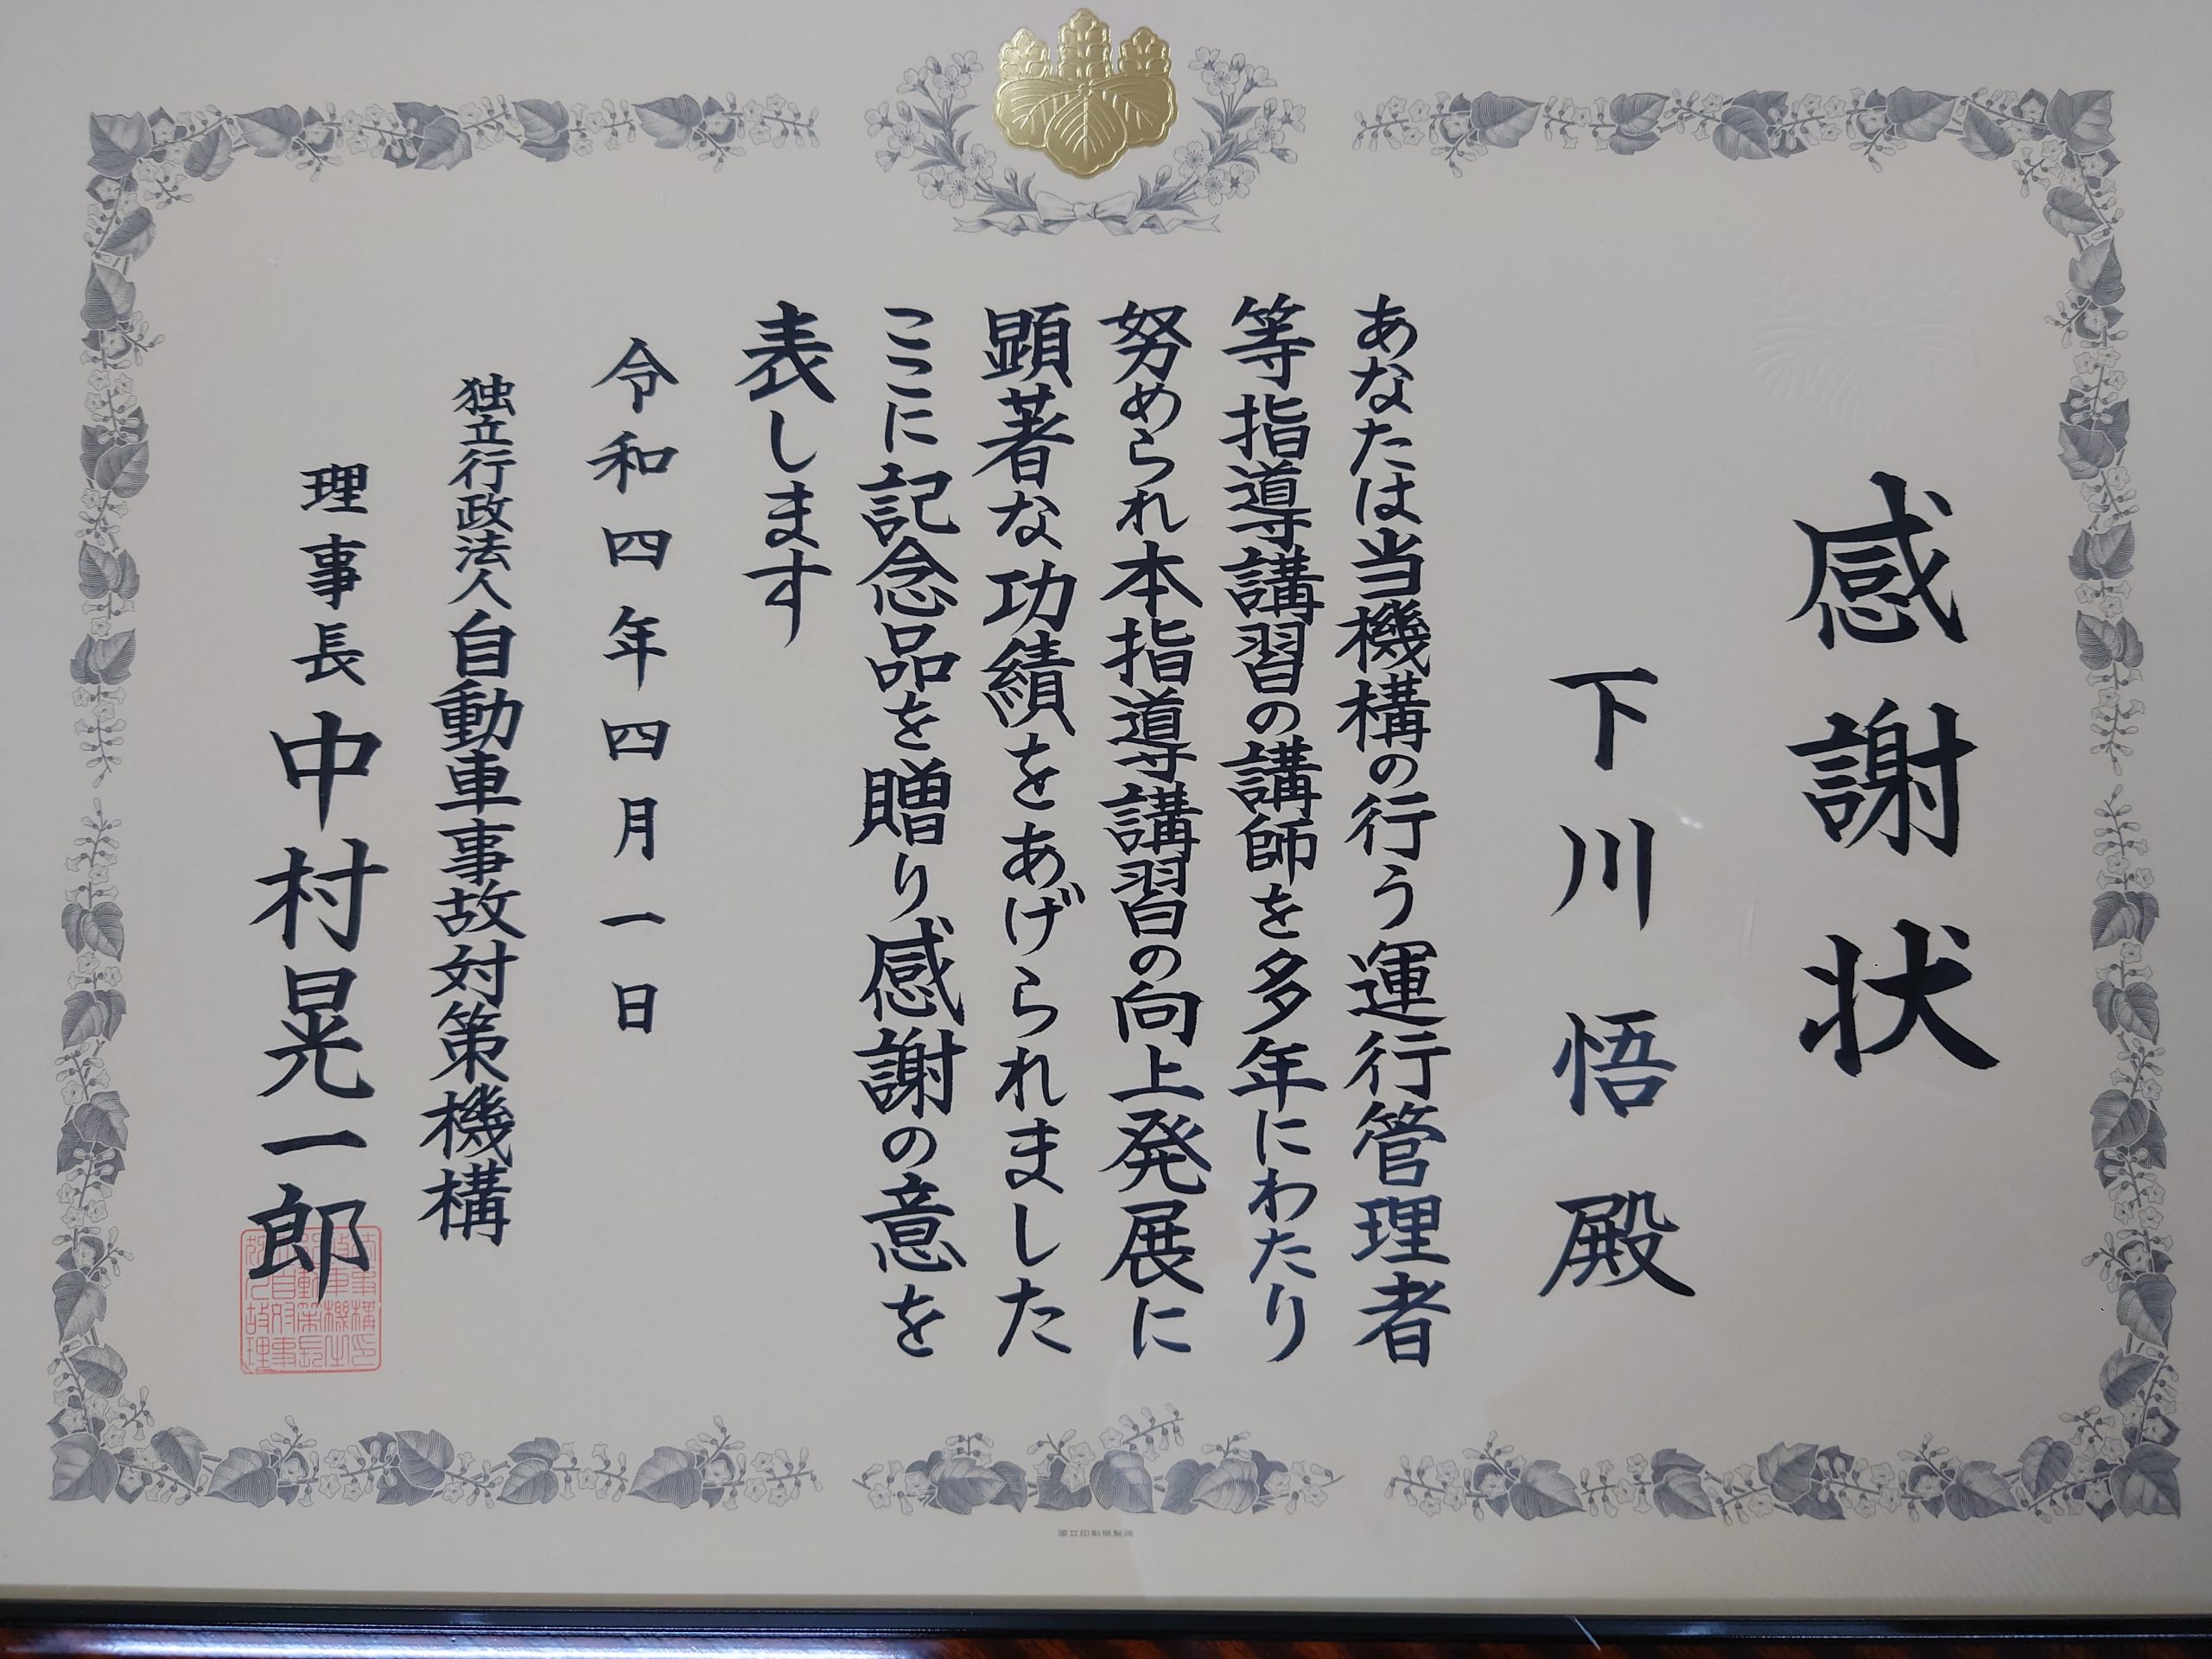 感謝状
下川悟殿
あなたは当機構の行う運行管理者
等指導講習の講師を多年にわたり
努められ本指導講習の向上発展に
顕著な功績をあげられました
ここに記念品を贈り感謝の意を
表します
令和四年四月一日
独立行政法人自動車事故対策機構
理事長中村晃一郎
国立印刷局製造